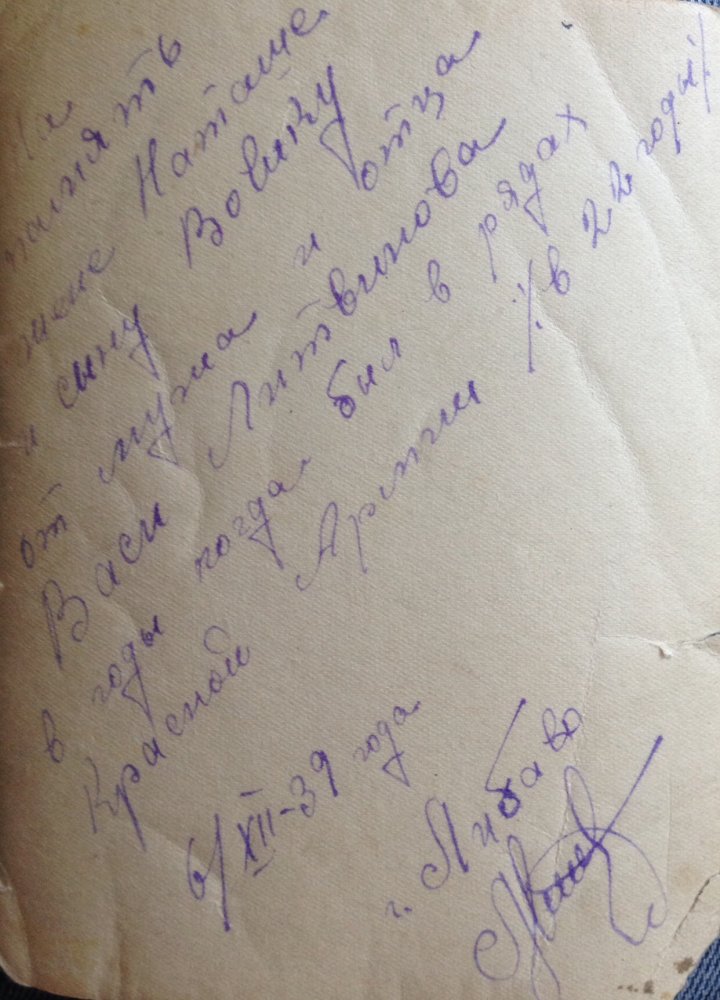 На
память
жене Наташе
и сыну Вовику
от мужа и отца
Васи Литвинова
в годы когда был в рядах
Красной Армии /в 22 годы/
6/XII-39 года
г. Либаво